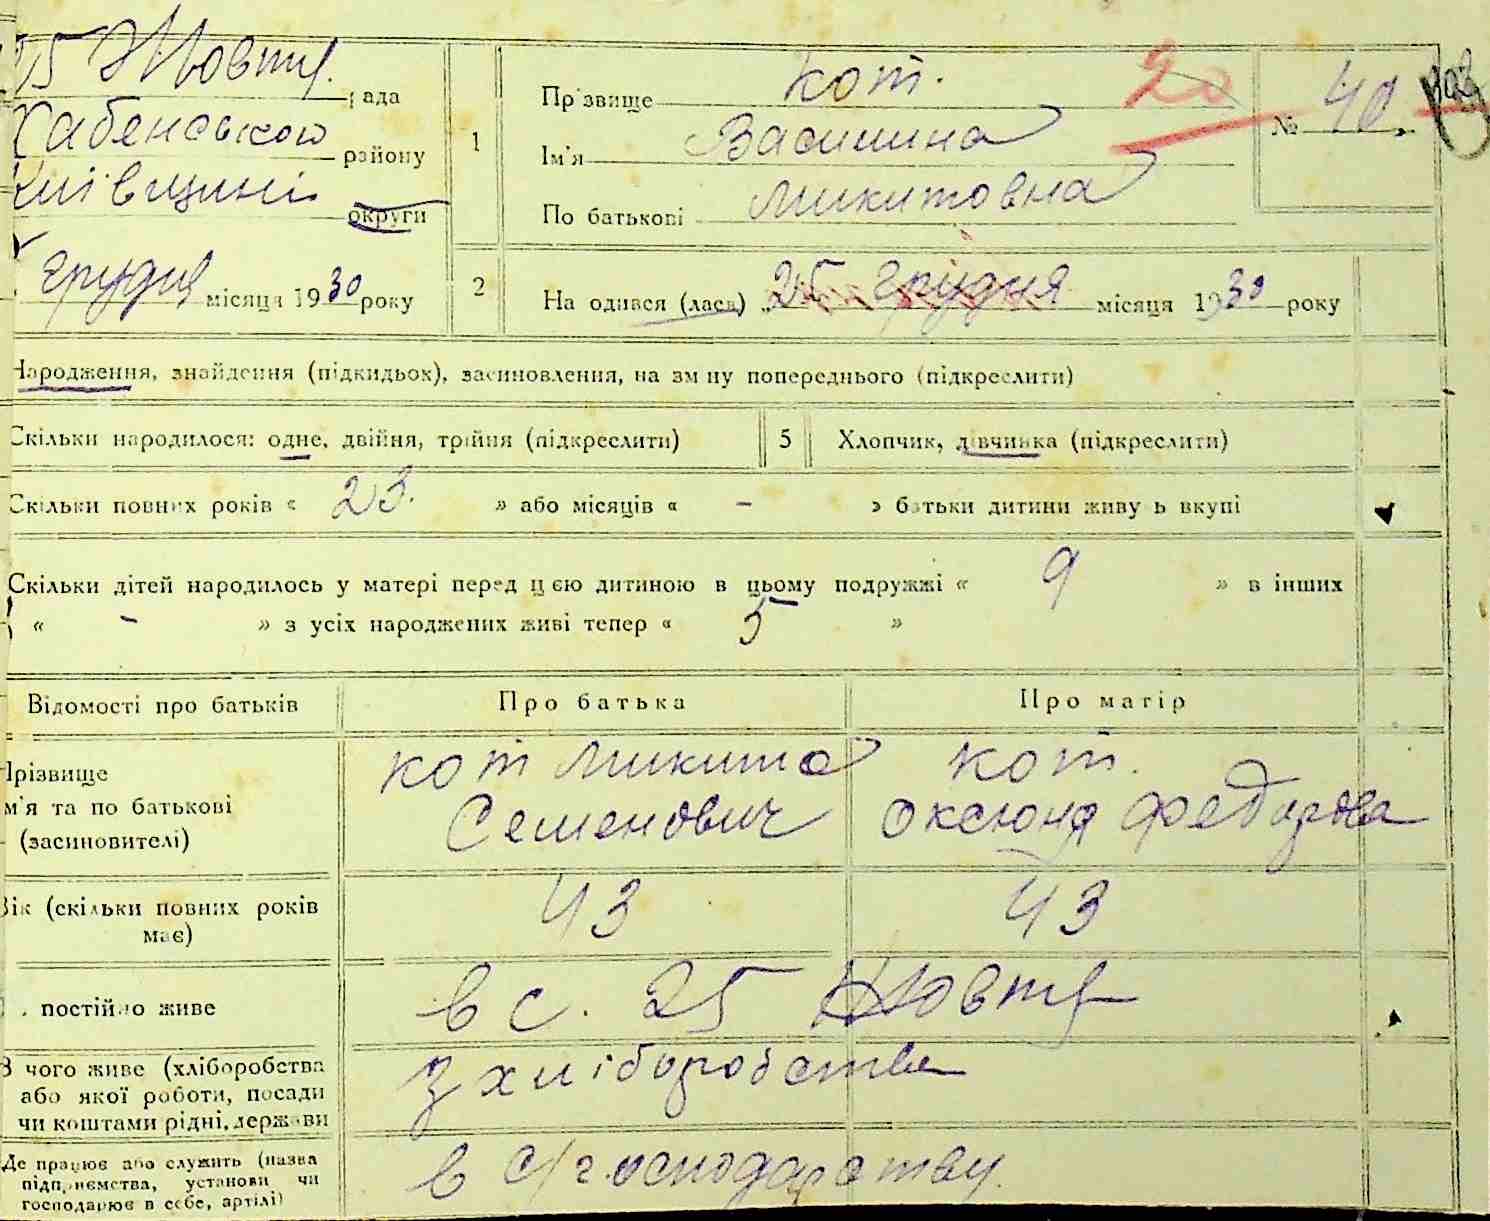 25 Жовтн. рада
Хабенського району
Київщині округи
грудня місяця 1930 року
1
Прізвище Кот.
20
№ 40
Ім'я Василина
По батькові Микитовна
2
На одився (лась) 25 грудня місяця 1930 року
Народження, знайдення (підкидьок), засиновлення, на зм ну попереднього (підкреслити)
Скільки народилося: одне, двійня, трійня (підкреслити)
5
Хлопчик, дівчинка (підкреслити)
Скільки повних років « 23. » або місяців « - » батьки дитини живу ь вкупі
Скільки дітей народилось у матері перед цією дитиною в цьому подружжі « 9 » в інших
« - » з усіх народжених живі тепер « 5 »
Відомості про батьків
Про батька
Про матір
Прізвище
м'я та по батькові
(засиновителі)
Кот Микита
Семенович
Кот.
Оксюня Федорова
Вік (скільки повних років
має)
43
43
постійно живе
в с. 25 Жовтн
З чого живе (хліборобства
або якої роботи, посади
чи коштами рідні, держави
з хліборобства
Де працює або служить (назва
підприємства, установи чи
господарює в себе, артілі)
в с/господарству.